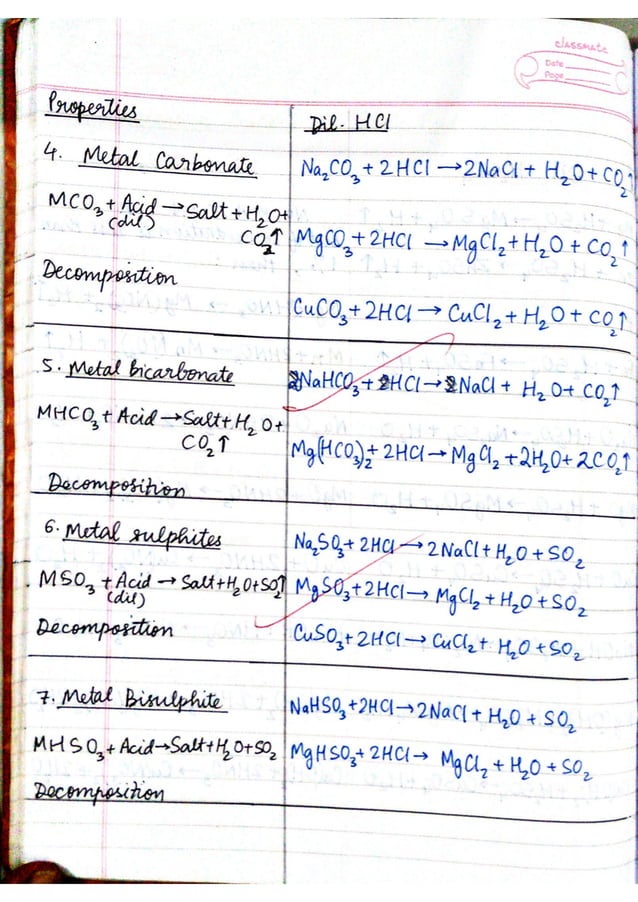 classmate
Date
Page
Properties
Dil. HCl
4. Metal Carbonate
Na₂CO₃ + 2HCl → 2NaCl + H₂O + CO₂↑
MCO₃ + Acid → Salt + H₂O +
(dil)
CO₂↑
MgCO₃ + 2HCl → MgCl₂ + H₂O + CO₂↑
Decomposition
CuCO₃ + 2HCl → CuCl₂ + H₂O + CO₂↑
5. Metal bicarbonate
2NaHCO₃ + 2HCl → 2NaCl + H₂O + CO₂↑
MHCO₃ + Acid → Salt + H₂O +
CO₂↑
Mg(HCO₃)₂ + 2HCl → MgCl₂ + 2H₂O + 2CO₂↑
Decomposition
6. Metal sulphites
Na₂SO₃ + 2HCl → 2NaCl + H₂O + SO₂
MSO₃ + Acid → Salt + H₂O + SO₂↑
(dil)
MgSO₃ + 2HCl → MgCl₂ + H₂O + SO₂
Decomposition
CuSO₃ + 2HCl → CuCl₂ + H₂O + SO₂
7. Metal Bisulphite
NaHSO₃ + 2HCl → 2NaCl + H₂O + SO₂
MHSO₃ + Acid → Salt + H₂O + SO₂
MgHSO₃ + 2HCl → MgCl₂ + H₂O + SO₂
Decomposition